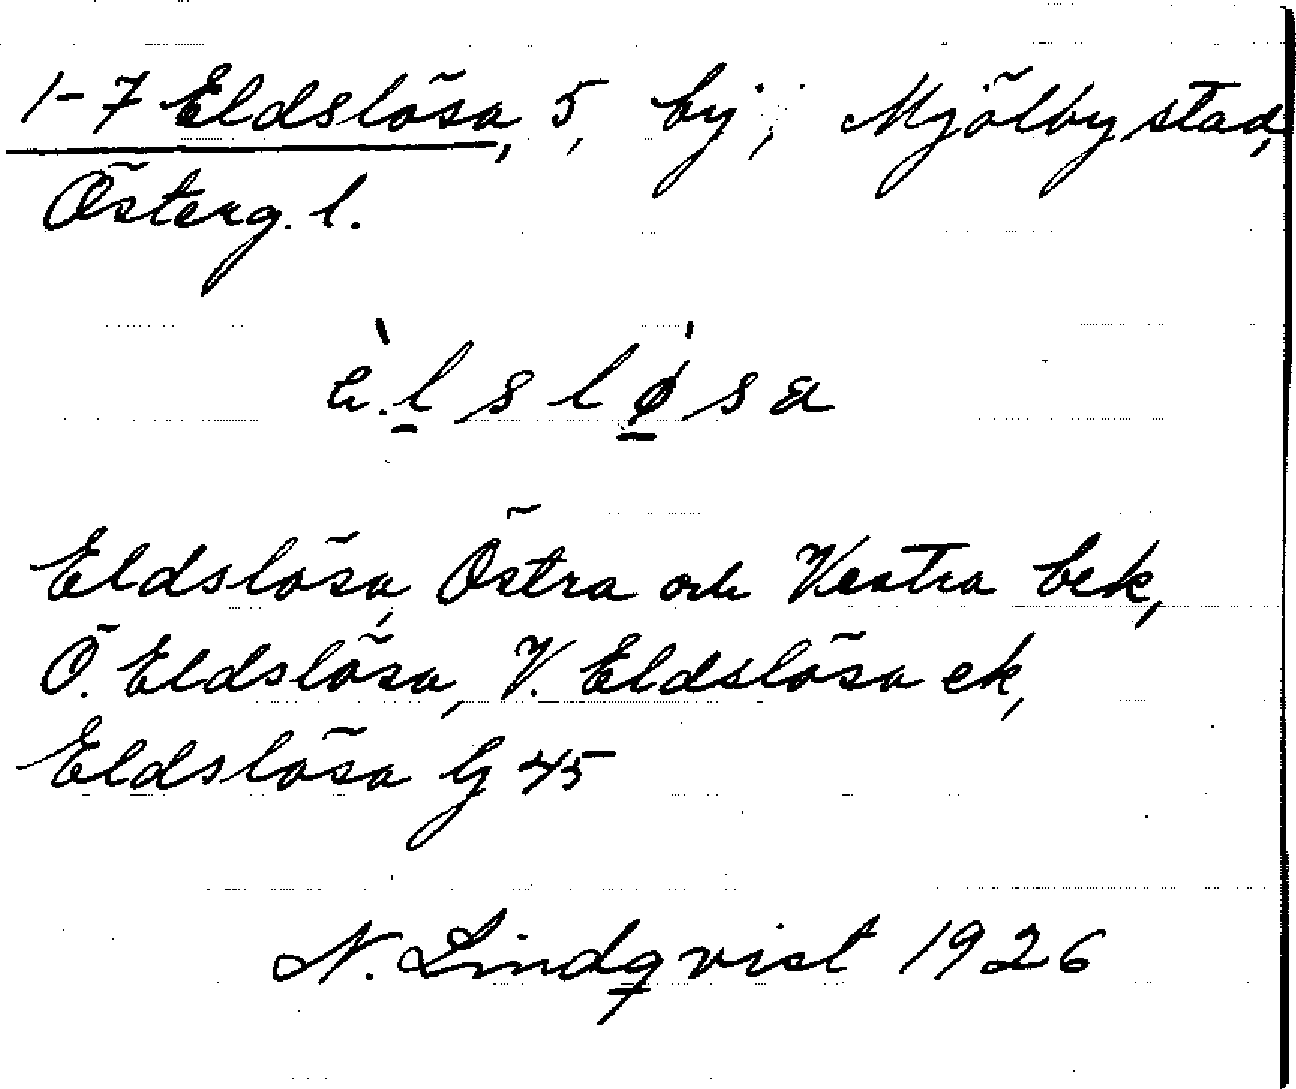 1-7 Eldslösa, 5, by; Mjölby stad,
Österg. l.
Eldslösa, Östra och Vestra bek,
Ö. Eldslösa, V. Eldslösa ek,
Eldslösa Gj 45
N. Lindqvist 1926